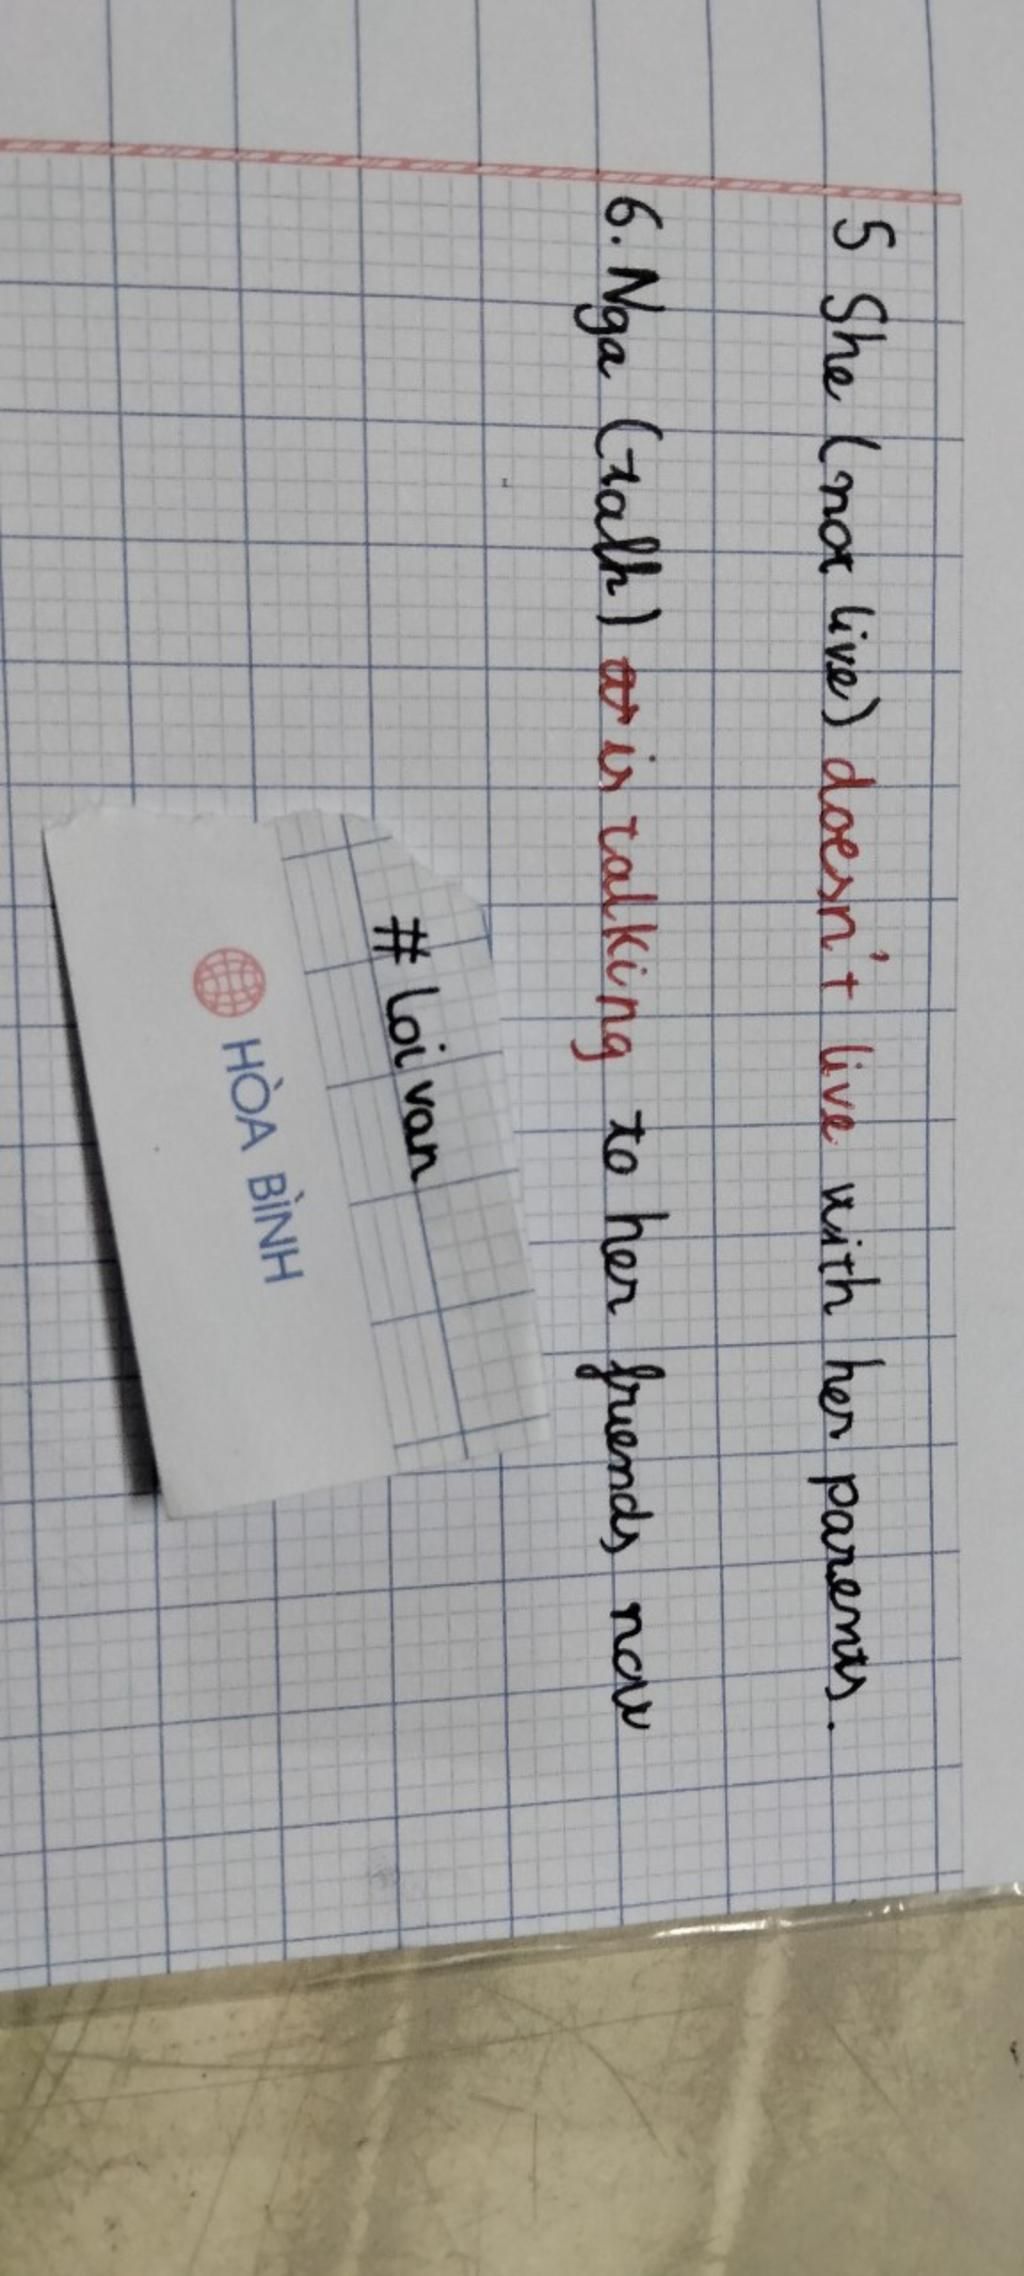 5 She (not live) doesn't live with her parents.
6. Nga (talk) is talking to her friends now
# Loi van
HÒA BÌNH